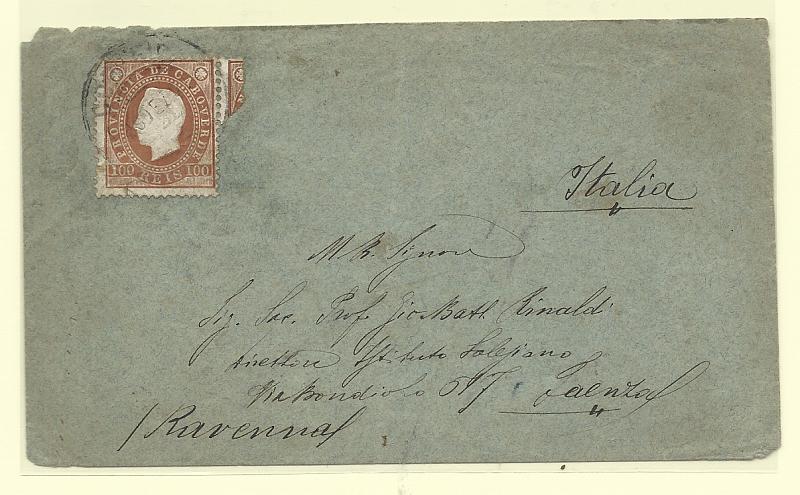 PROVINCIA DE CABO-VERDE
100 REIS 100
Italia
M. R. Signor
Sig. Sac. Prof. Gio Batt. Rinaldi
Direttore Istituto Salesiano
Via Bondiolo Faenza
(Ravenna)